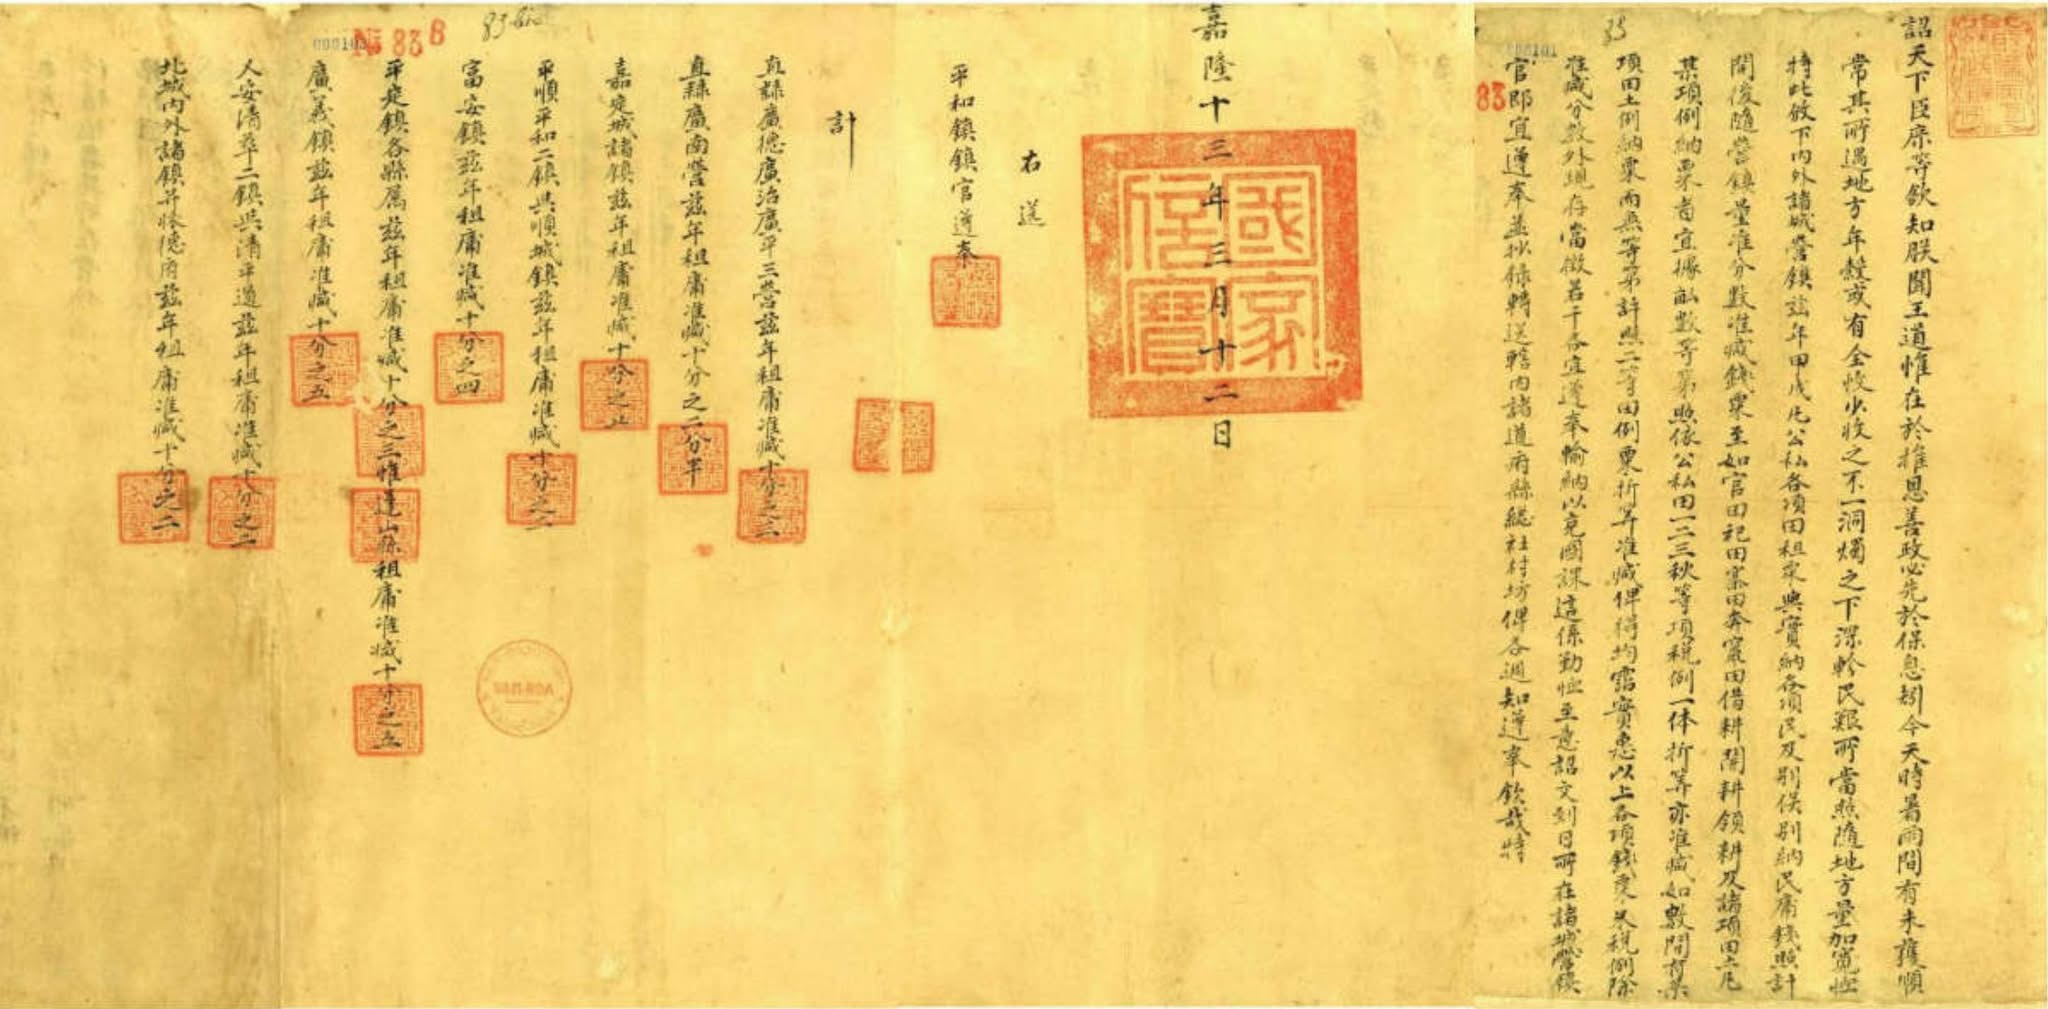 詔天下臣庶等欽知朕聞王道惟在於推恩善政必先於保息剏今天時暑雨間有未獲順
常其所遇地方年穀或有全收少收之不一洞燭之下深軫民艱所當照隨地方量加寬恤
特此放下內外諸城營鎮玆年甲戌凡公私各項田租粟與實納各項民及別侯別納民庸錢照計
開後隨營鎮量准分數准減錢粟至如官田祀田寨田奔竄田借耕閒耕領耕及諸項田土凡
某項例納粟者宜據畝數等第照依公私田一二三秋等項稅例一体折算亦准減如數間有某
項田土例納粟而無等第許照二等田例粟折算准減俾得均霑實惠以上各項錢粟
准減分數外現存當徵若干各宜遵奉輸納以充國課這係勤恤至意詔文到日所在諸城營鎮
官即宜遵奉並抄錄轉送轄內諸道府縣總社村坊俾各週知遵奉欽哉特
嘉隆十三年三月十二日
國家信寶
右送
平和鎮鎮官遵奉
計
直隸廣德廣治廣平三營玆年租庸准減十分之三
直隸廣南營玆年租庸准減十分之二分半
嘉定城諸鎮玆年租庸准減十分之
平順平和二鎮與順城鎮玆年租庸准減十分之二
富安鎮玆年租庸准減十分之四
平定鎮各縣屬玆年租庸准減十分之三惟蓬山縣租庸准減十分之五
廣義鎮玆年租庸准減十分之五
乂安清華二鎮與清平道玆年租庸准減十分之二
北城內外諸鎮并懷德府玆年租庸准減十分之二
83
000101
35
№ 83 B
83 bis